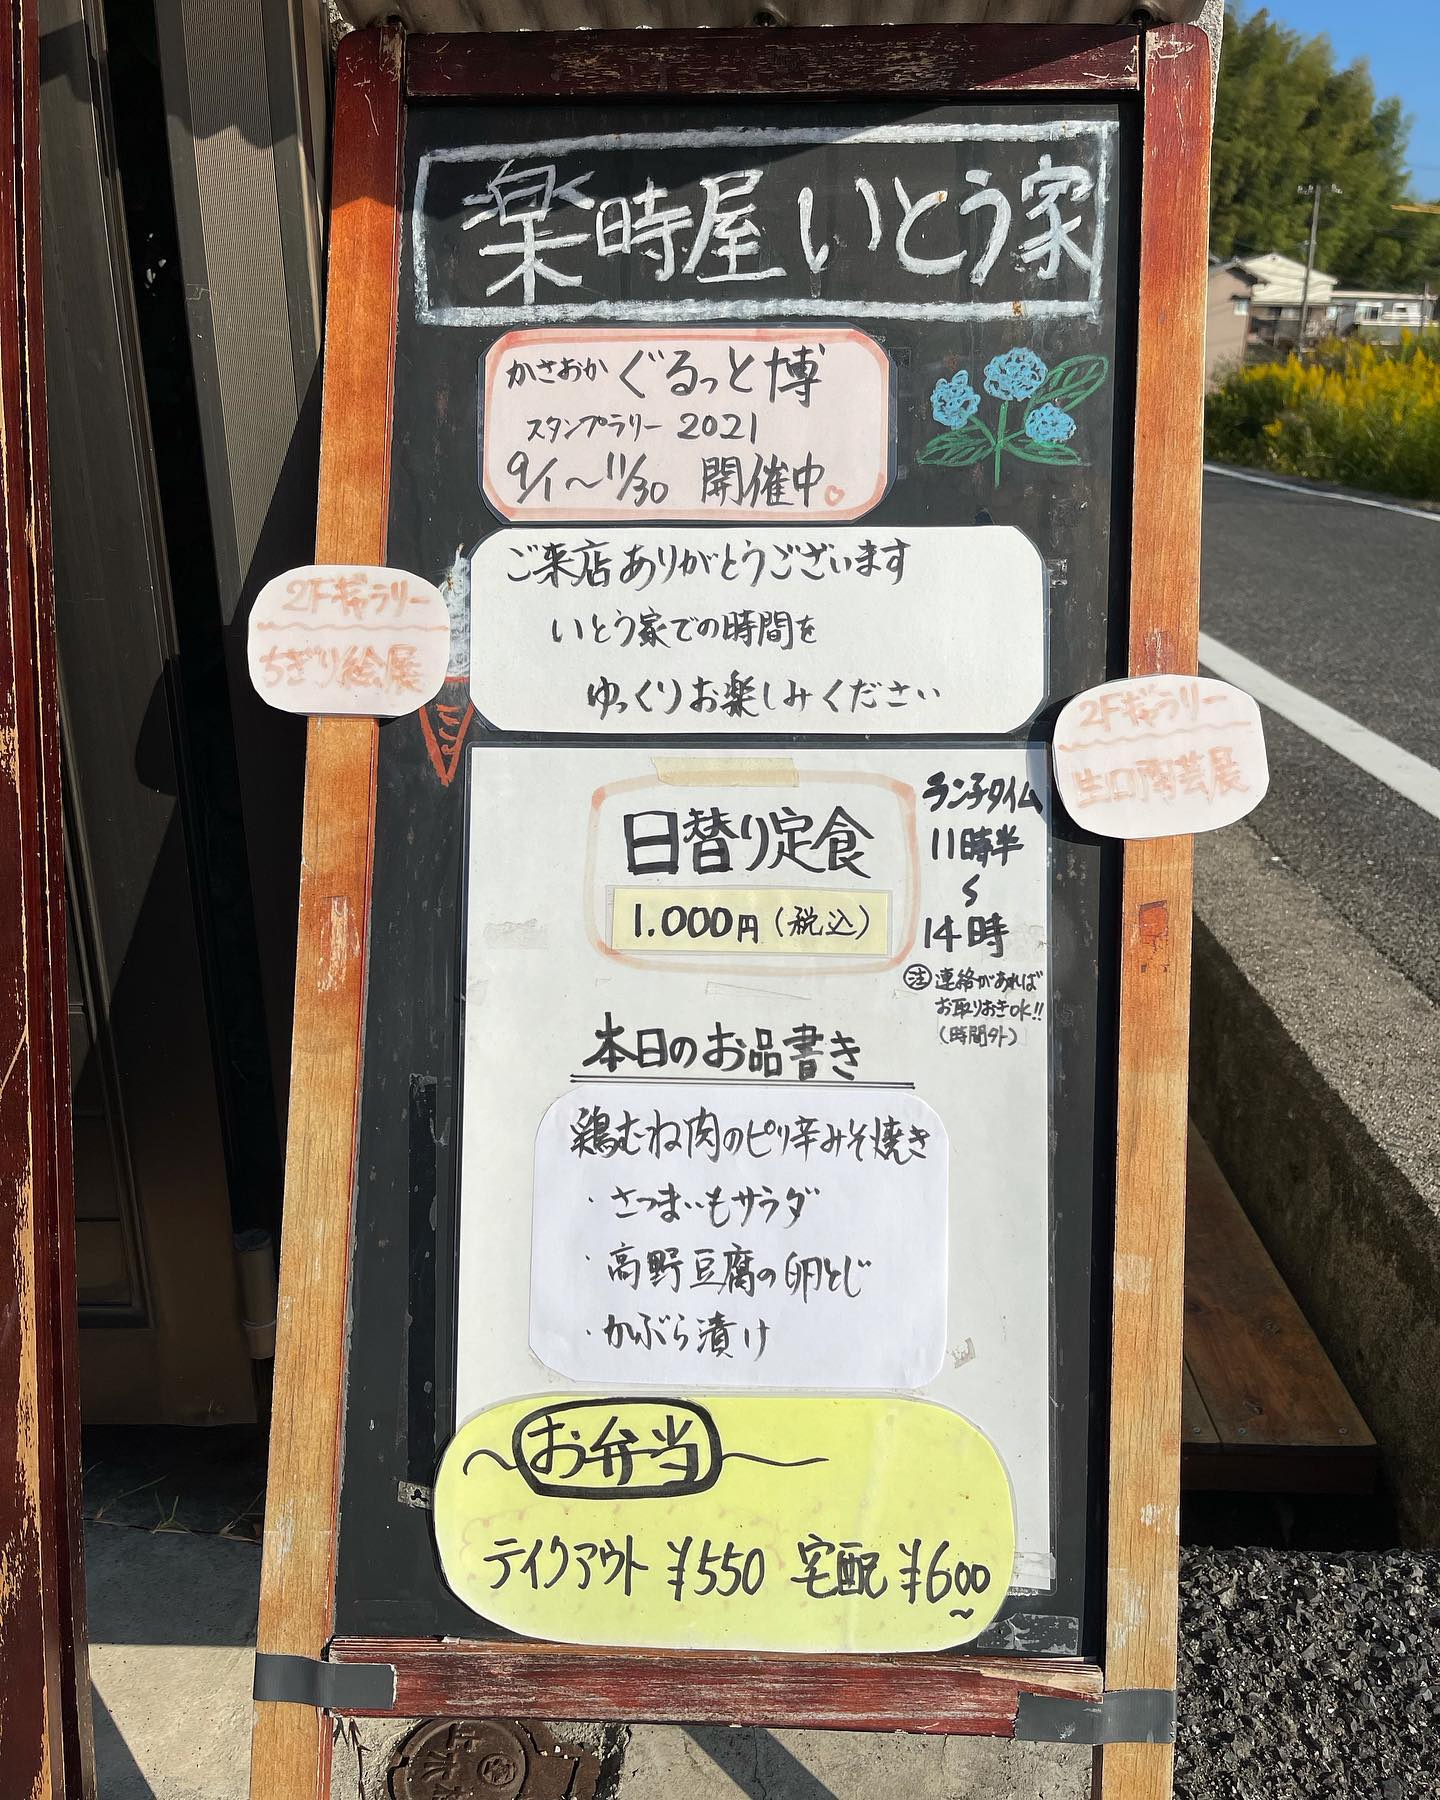 楽時屋 いとう家
かさおか ぐるっと博
スタンプラリー 2021
9/1〜11/30 開催中。
ご来店ありがとうございます
いとう家での時間を
ゆっくりお楽しみください
2Fギャラリー
ちぎり絵展
2Fギャラリー
生口陶芸展
日替り定食
1.000円(税込)
ランチタイム
11時半
〜
14時
注 連絡があれば
お取りおきOK!!
(時間外)
本日のお品書き
鶏むね肉のピリ辛みそ焼き
・さつまいもサラダ
・高野豆腐の卵とじ
・かぶら漬け
〜お弁当〜
テイクアウト ¥550 宅配 ¥600〜